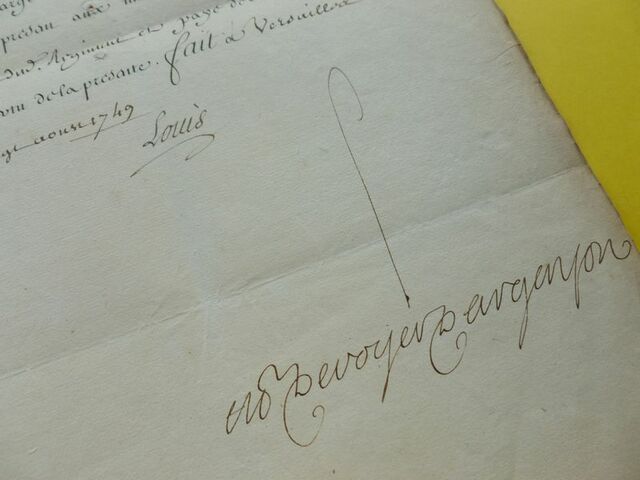 presan aux
dud. Regiment et page de
vertu de la presente. fait a Versailles
aoust 1749
Louis
M De voyer D'argenson